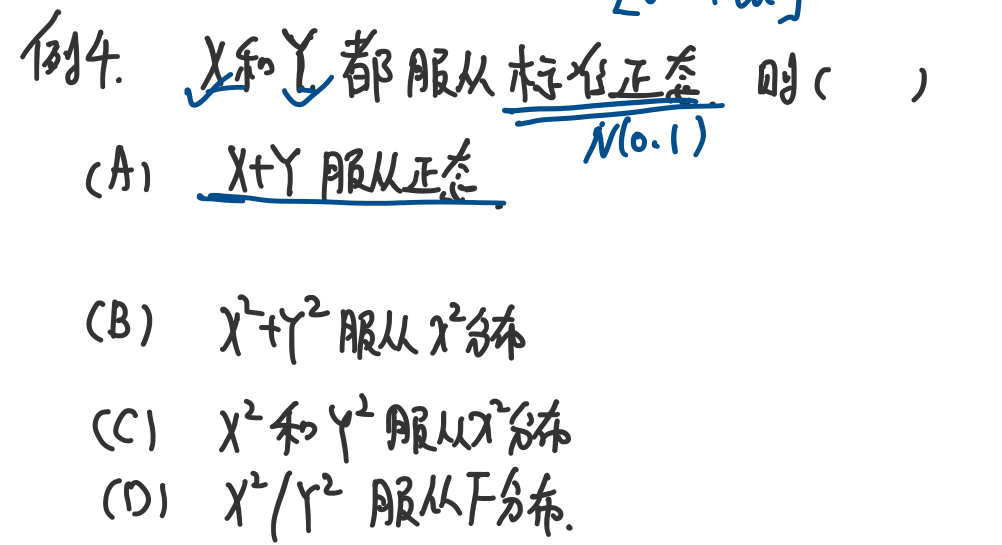 例4. X和Y都服从标准正态 则( )
N(0.1)
(A) X+Y 服从正态
(B) X²+Y² 服从 χ²分布
(C) X² 和 Y² 服从χ²分布
(D) X²/Y² 服从F分布.